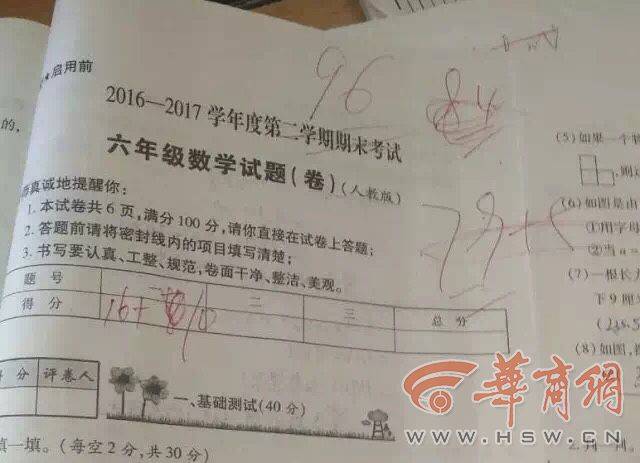 启用前
2016—2017学年度第二学期期末考试
六年级数学试题(卷)(人教版)
真诚地提醒你:
1. 本试卷共6页,满分100分,请你直接在试卷上答题;
2. 答题前请将密封线内的项目填写清楚;
3. 书写要认真、工整、规范,卷面干净、整洁、美观。
题 号 一 二 三 总 分
得 分 16+
分 评卷人
一、基础测试(40分)
填一填。(每空2分,共30分)
96
84
的,
(5)如果一个
(6)如图是由
①用字母
②当a=
(7)一根长方
下9厘
(8)如图,
华商网
WWW.HSW.CN